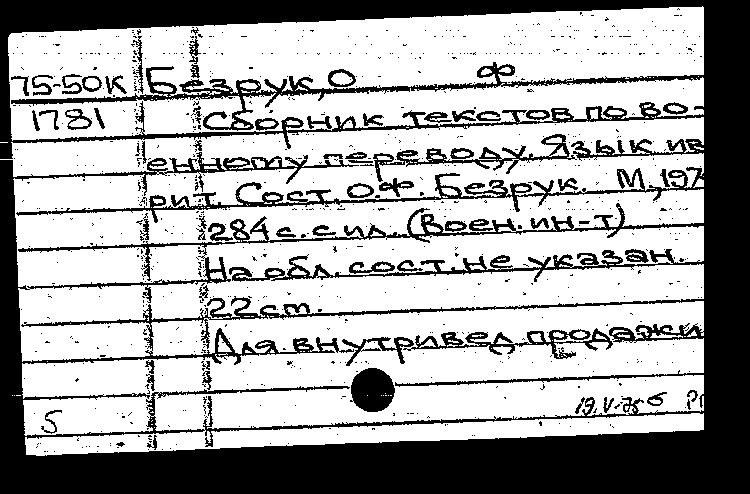 75-50К Безрук, О Ф
1781 Сборник текстов по во-
енному переводу. Язык ив
рит. Сост. О.Ф. Безрук. М., 197
284 с. с ил. (Воен. ин-т)
На обл. сост. не указан.
22 cm.
Для внутривед. продажи
5 19.V-75 б